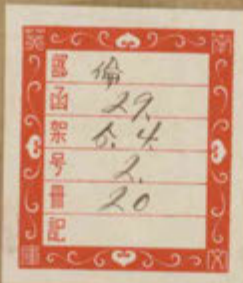 部 倫
函 29.
架 6. 4.
号 2.
冊 20
記